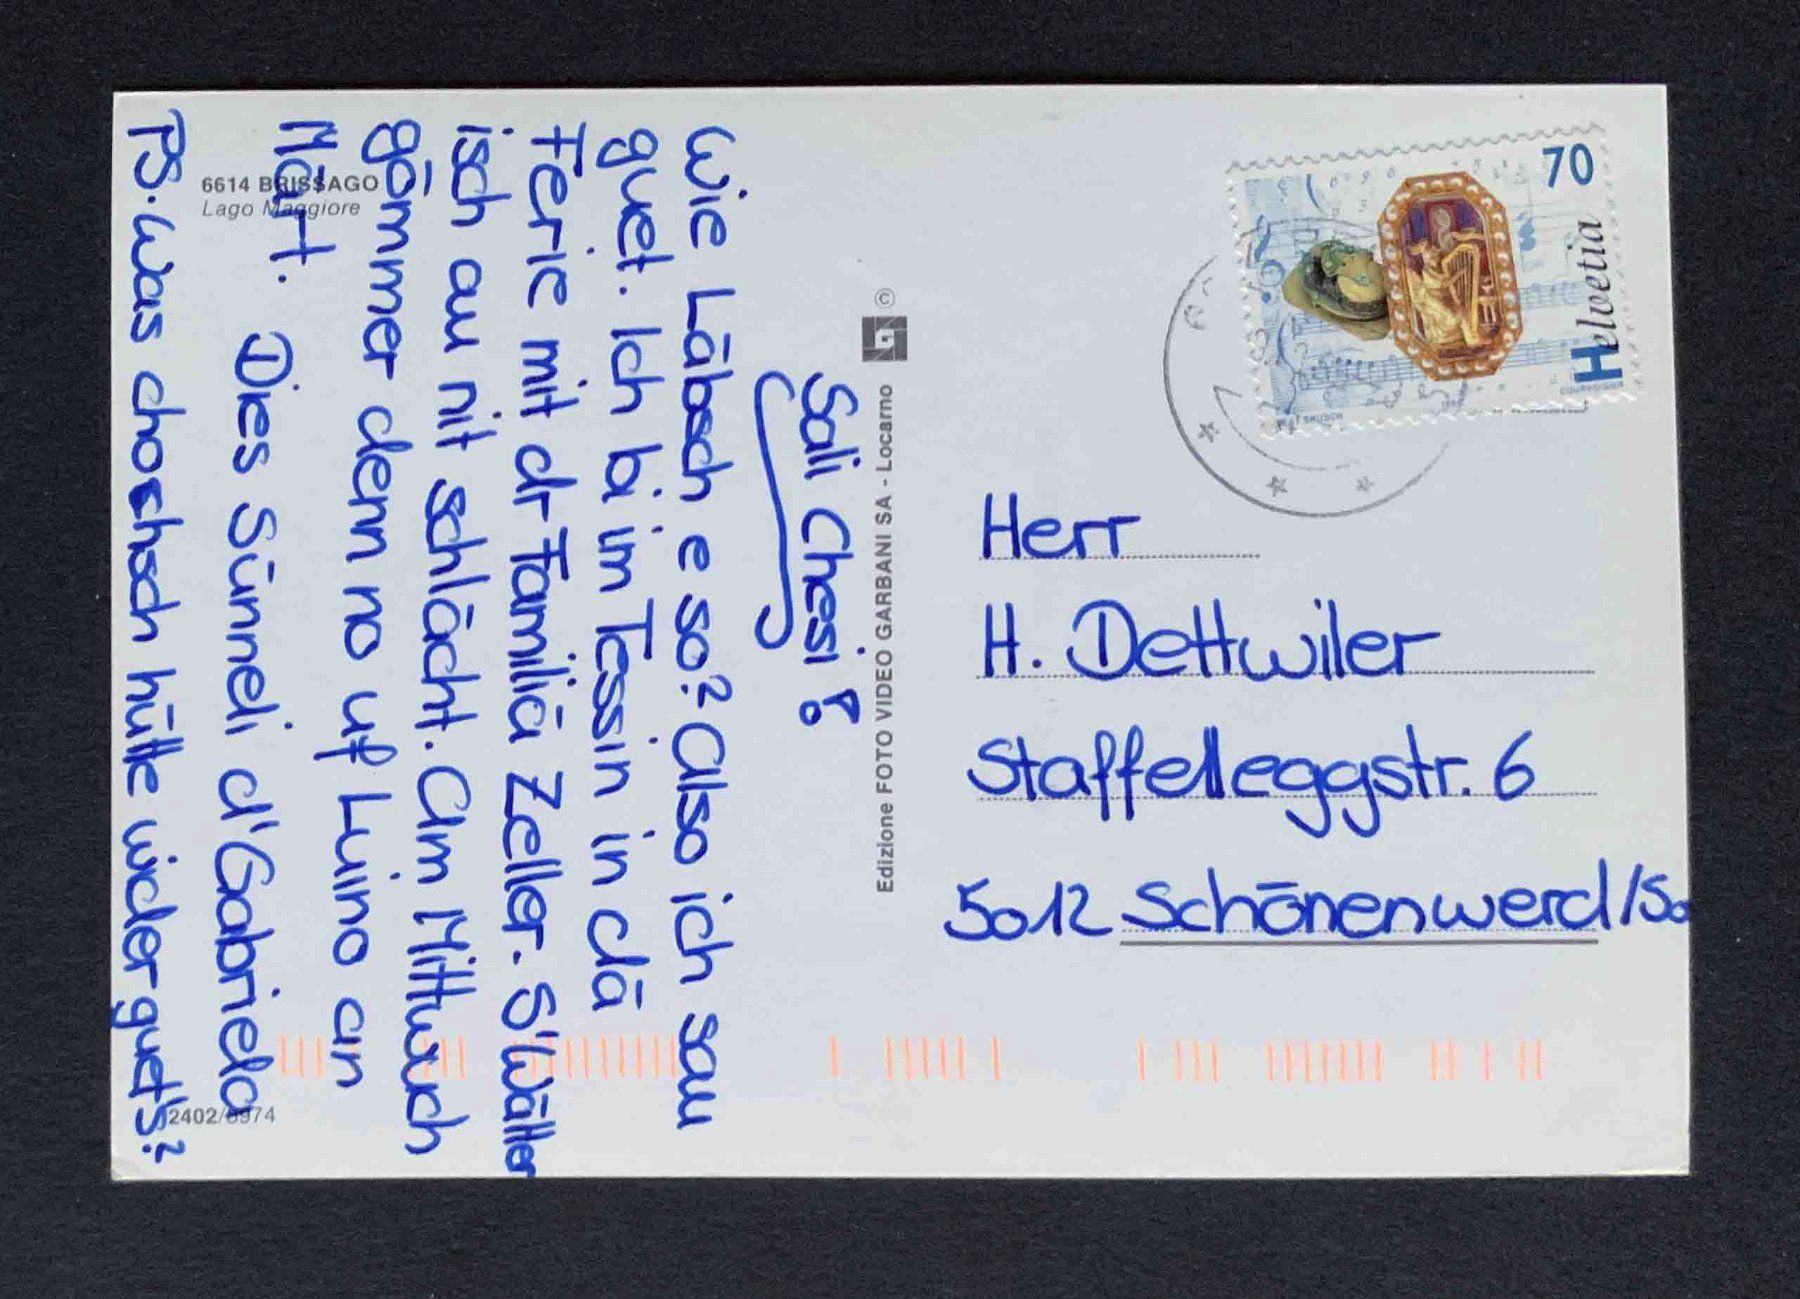 6614 BRISSAGO
Lago Maggiore
Sali Chesi!
Wie Läbsch e so? Also ich sau
guet. Ich bi im Tessin in dä
Ferie mit dr Familiä Zeller. S'Wätter
isch au nit schlächt. Am Mittwuch
gömmer denn no uf Luino an
Märt.
Dies Sünneli d'Gabriela
PS. Was chochsch hütte wider guet's?
2402/8974
Edizione FOTO VIDEO GARBANI SA - Locarno
©
70
Helvetia
COURVOISIER
Herr
H. Dettwiler
Staffelleggstr. 6
5012 Schönenwerd/So